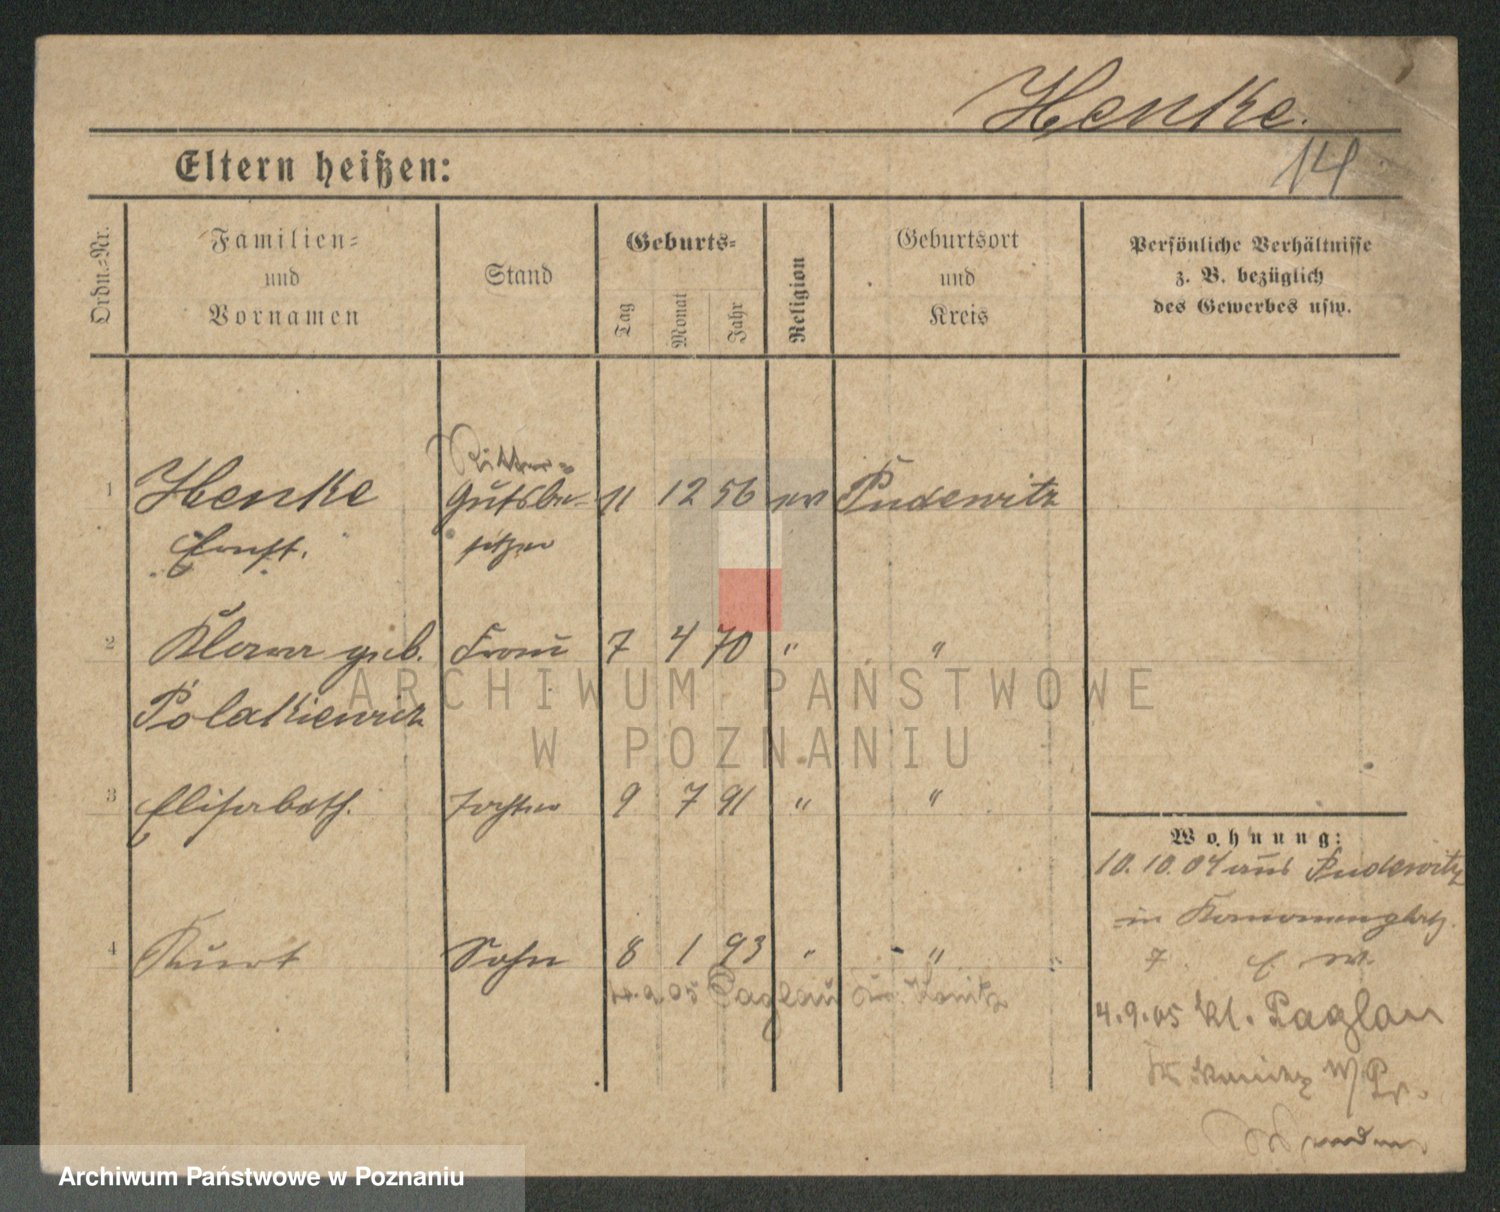 Henke.
14
Eltern heißen:
Ordn.=Nr.
Familien=
und
Vornamen
Stand
Geburts=
Tag
Monat
Jahr
Religion
Geburtsort
und
Kreis
Persönliche Verhältnisse
z. B. bezüglich
des Gewerbes usw.
Ritter=
1 Henke Gutsbe= 11 12 56 ev Pudewitz
Ernst. sitzer
2 Klara geb. Frau 7 4 70 " "
Polakiewicz
3 Elisabeth. Tochter 9 7 91 " "
4 Kurt Sohn 8 1 93 " "
4.9.05 Paglau Kr. Konitz
Wohnung:
10.10.04 aus Pudewitz
in
7
4.9.05 Kl. Paglau
Kr Konitz W/Pr.
ARCHIWUM PAŃSTWOWE
W POZNANIU
Archiwum Państwowe w Poznaniu